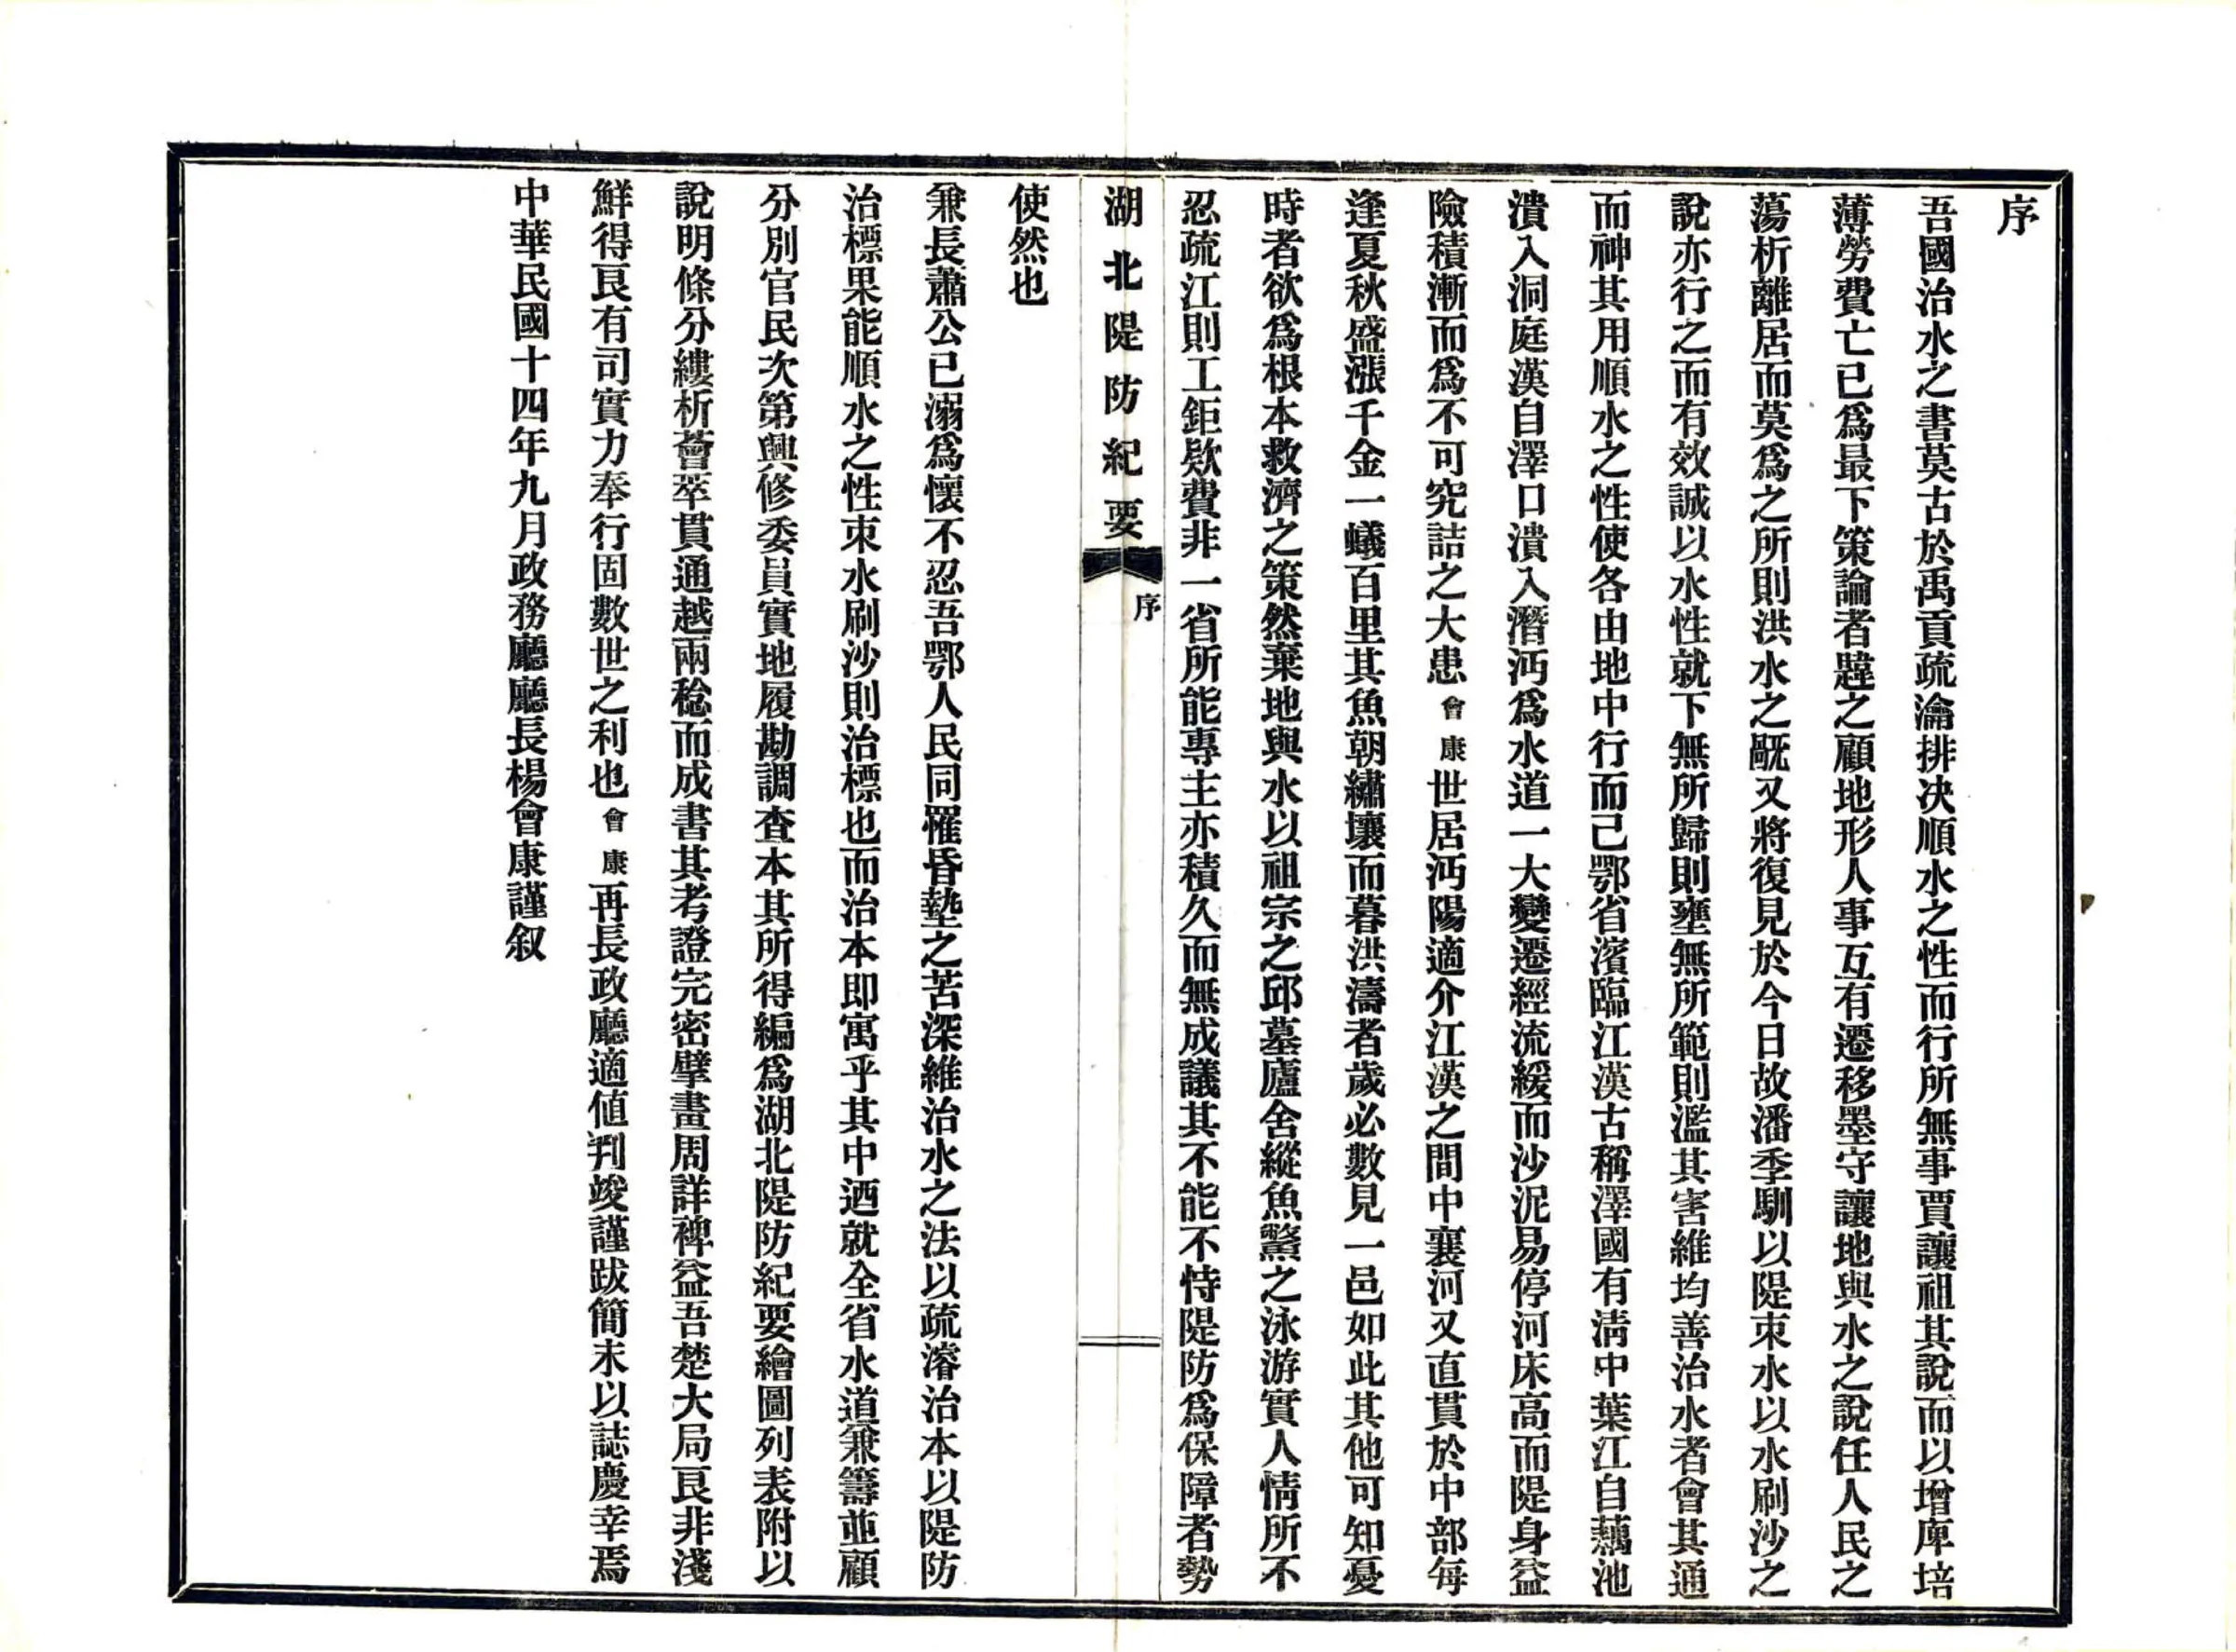 序
吾國治水之書莫古於禹貢疏瀹排決順水之性而行所無事賈讓祖其說而以增庳培
薄勞費亡已爲最下策論者韙之顧地形人事互有遷移墨守讓地與水之說任人民之
蕩析離居而莫爲之所則洪水之旤又將復見於今日故潘季馴以隄束水以水刷沙之
說亦行之而有效誠以水性就下無所歸則壅無所範則濫其害維均善治水者會其通
而神其用順水之性使各由地中行而已鄂省濱臨江漢古稱澤國有淸中葉江自藕池
潰入洞庭漢自澤口潰入潛沔爲水道一大變遷經流緩而沙泥易停河床高而隄身益
險積漸而爲不可究詰之大患會康世居沔陽適介江漢之間中襄河又直貫於中部每
逢夏秋盛漲千金一蟻百里其魚朝繡壤而暮洪濤者歲必數見一邑如此其他可知憂
時者欲爲根本救濟之策然棄地與水以祖宗之邱墓廬舍縱魚鱉之泳游實人情所不
忍疏江則工鉅欵費非一省所能專主亦積久而無成議其不能不恃隄防爲保障者勢
湖北隄防紀要
序
使然也
兼長蕭公已溺爲懷不忍吾鄂人民同罹昏墊之苦深維治水之法以疏濬治本以隄防
治標果能順水之性束水刷沙則治標也而治本即寓乎其中迺就全省水道兼籌並顧
分別官民次第興修委員實地履勘調查本其所得編爲湖北隄防紀要繪圖列表附以
說明條分縷析薈萃貫通越兩稔而成書其考證完密擘畫周詳裨益吾楚大局良非淺
鮮得良有司實力奉行固數世之利也會康再長政廳適值判竣謹跋簡末以誌慶幸焉
中華民國十四年九月政務廳廳長楊會康謹叙